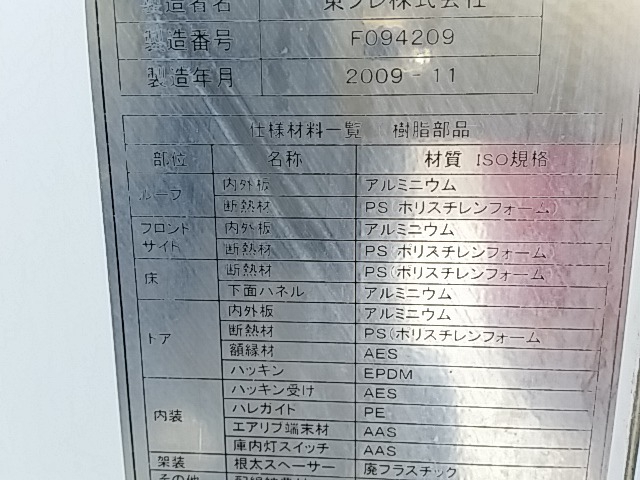 製造者名 東プレ株式会社
製造番号 F094209
製造年月 2009-11
仕様材料一覧 樹脂部品
部位 名称 材質 ISO規格
ルーフ 内外板 アルミニウム
断熱材 PS(ホリスチレンフォーム)
フロント サイト 内外板 アルミニウム
断熱材 PS(ホリスチレンフォーム)
床 断熱材 PS(ホリスチレンフォーム)
下面ハネル アルミニウム
トア 内外板 アルミニウム
断熱材 PS(ホリスチレンフォーム
額縁材 AES
ハッキン EPDM
内装 ハッキン受け AES
ハレガイト PE
エアリブ端末材 AAS
庫内灯スイッチ AAS
架装 根太スヘーサー 廃フラスチック
その他